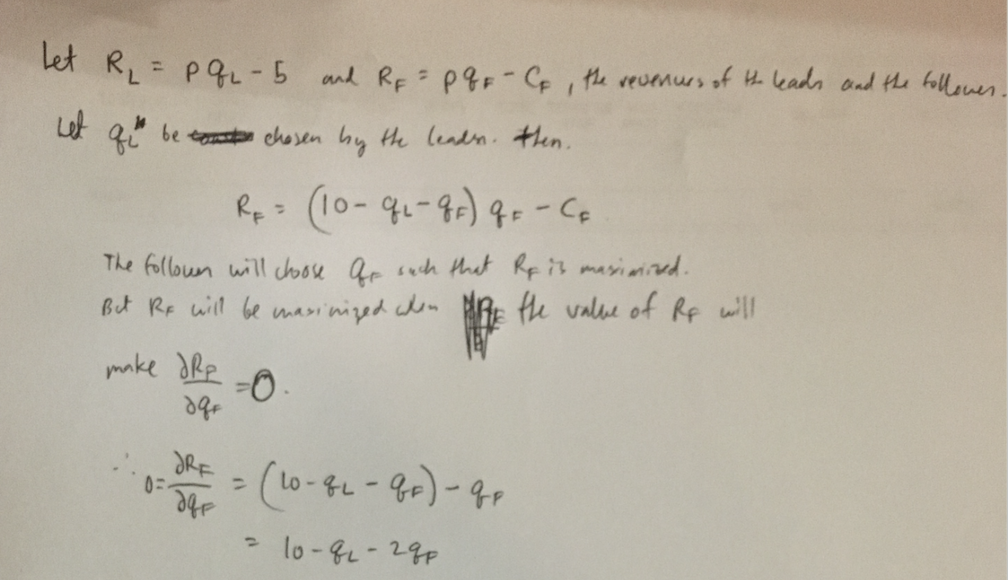 Let R_L = pq_L - 5 and R_F = pq_F - C_F, the revenues of the leader and the follower.
Let q_L* be chosen by the leader. then.
R_F = (10 - q_L - q_F) q_F - C_F
The follower will choose q_F such that R_F is maximized.
But R_F will be maximized when the value of R_F will
make ∂R_F/∂q_F = 0.
∴ 0 = ∂R_F/∂q_F = (10 - q_L - q_F) - q_F
= 10 - q_L - 2q_F